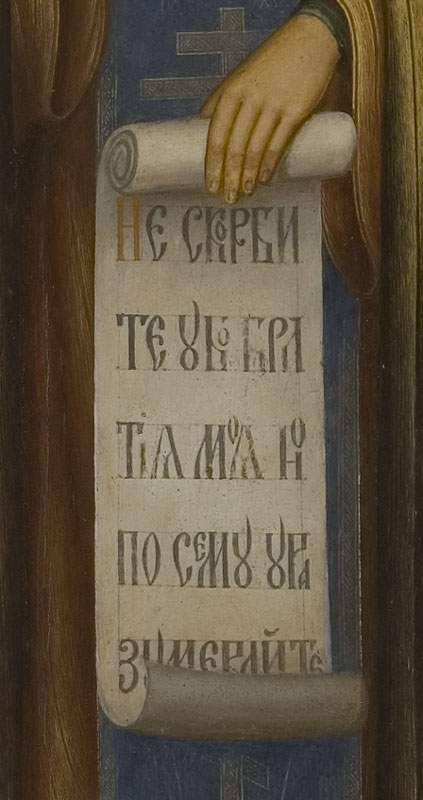 Не скорби
те убо бра
тїѧ моѧ но
по сему ура
зумевайте